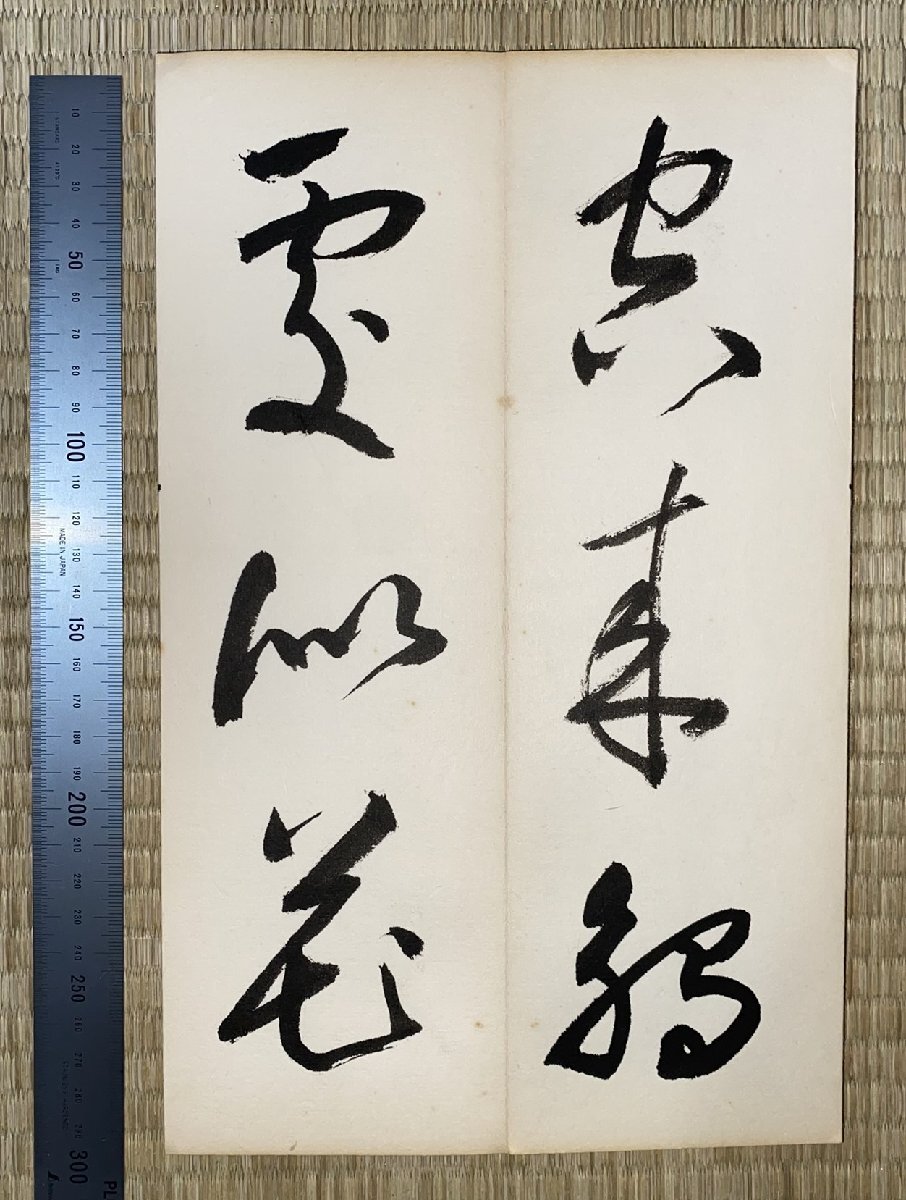 來觸
處似花
10
20
30
40
50
60
70
80
90
100
110
120
130
140
150
160
170
180
190
200
210
220
230
240
250
260
270
280
290
300
MADE IN JAPAN